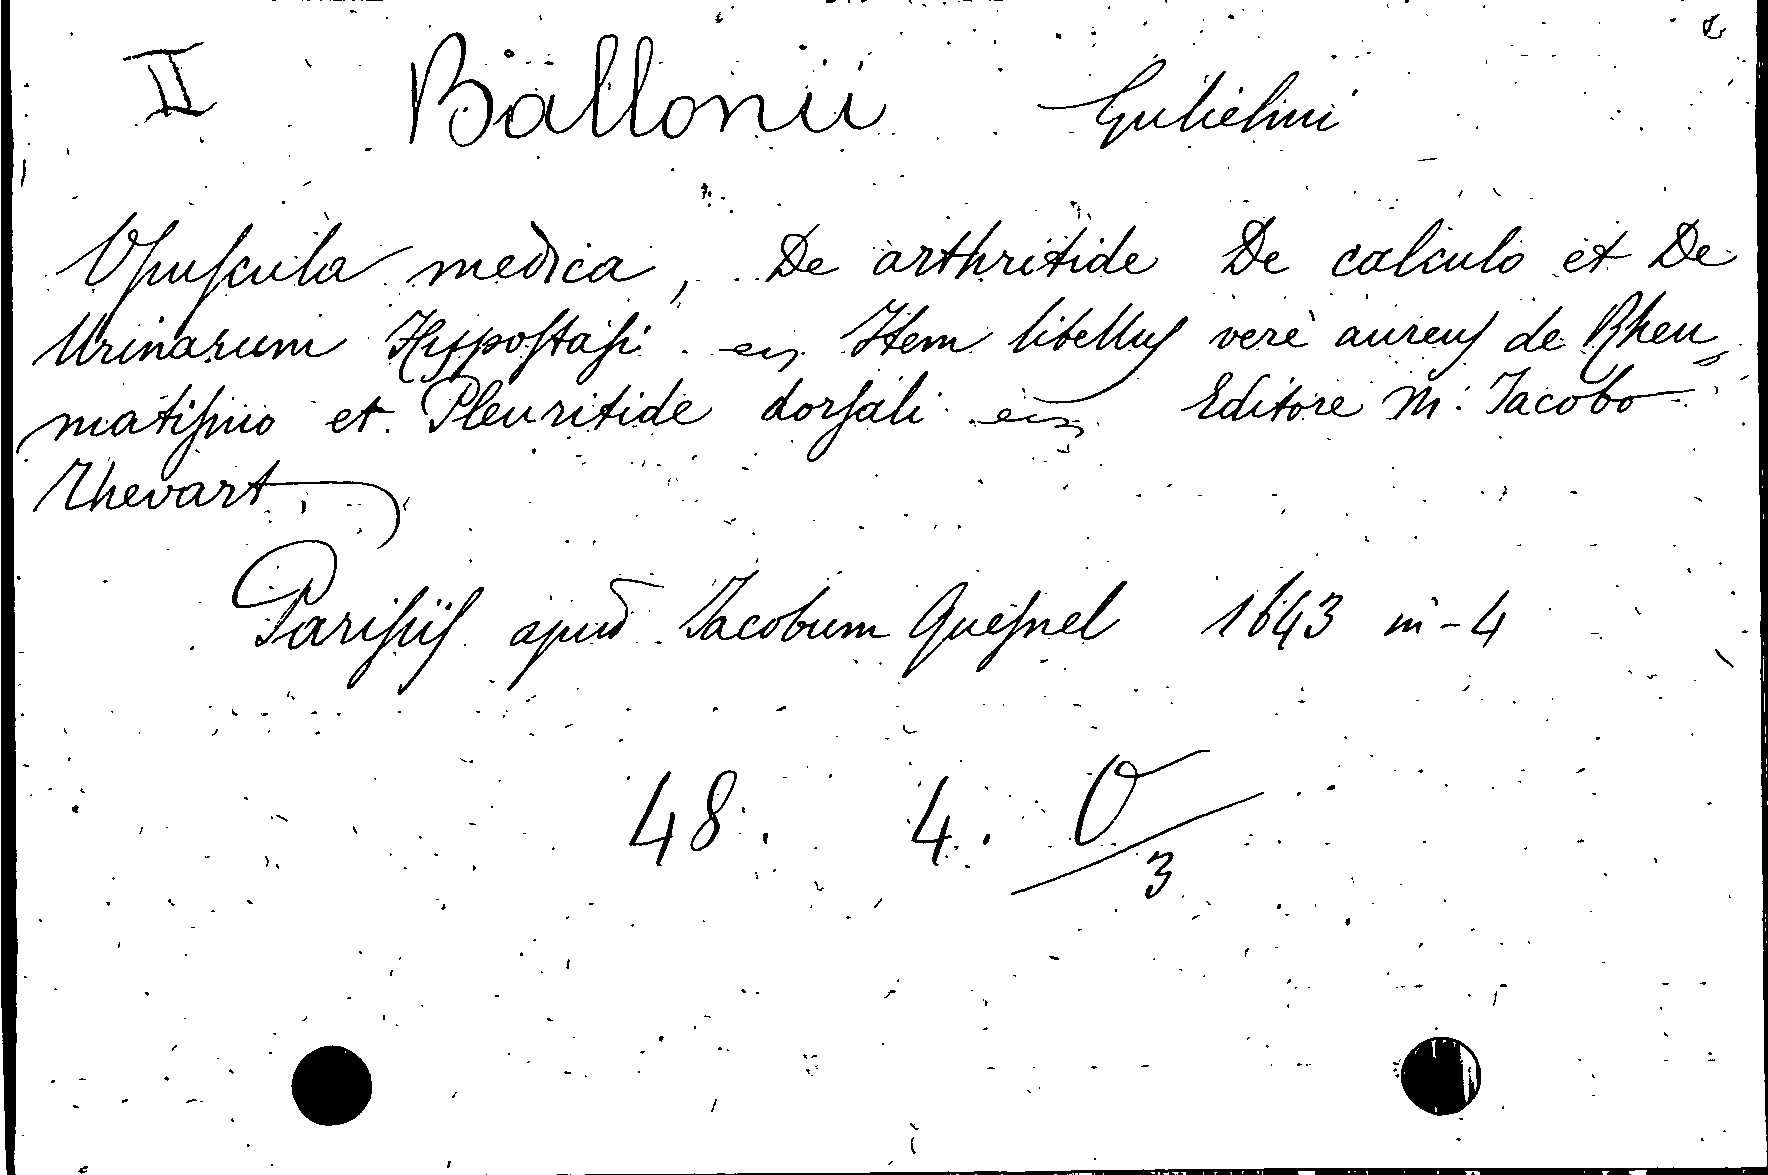 II Ballonii Gulielmi
Opuſcula medica, De arthritide De calculo et De
Urinarum Hypoſtaſi Item libelluſ verè aureuſ de Rheu-
matiſmo et Pleuritide dorſali Editore M. Iacobo
Thevart.
Pariſiiſ apud Iacobum Queſnel 1643 in-4
48. 4. O/3